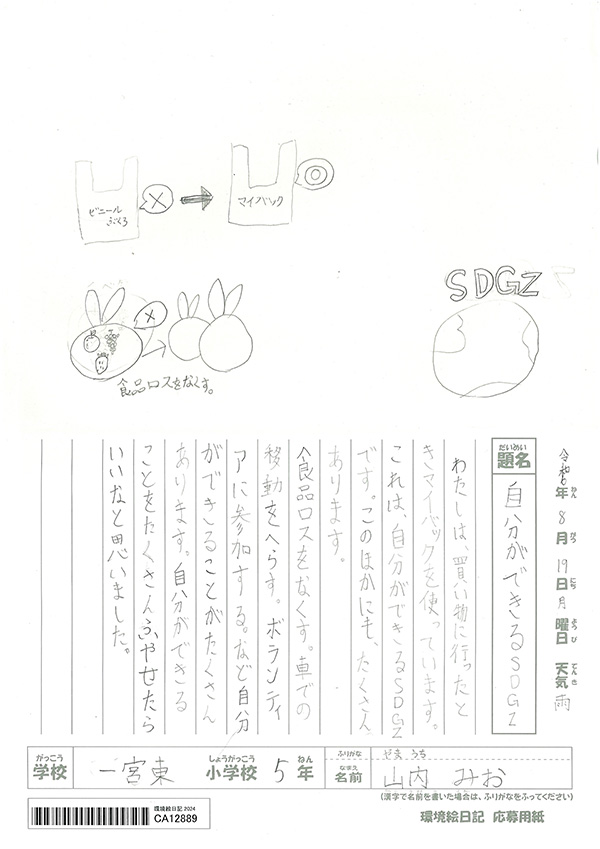 ビニール
ぶくろ
マイバック
食品ロスをなくす。
SDGz
令和6年8月19日月曜日 天気雨
ねん がつ にち ようび てんき
だいめい
題名
自分ができるSDGz
わたしは、買い物に行ったと
きマイバックを使っています。
これは、自分ができるSDGz
です。このほかにも、たくさん
あります。
食品ロスをなくす。車での
移動をへらす。ボランティ
アに参加する。など自分
ができることがたくさん
あります。自分ができる
ことをたくさんふやせたら
いいなと思いました。
がっこう
学校
一宮東
しょうがっこう
小学校
5
ねん
年
ふりがな
なまえ
名前
やまうち
山内 みお
(漢字で名前を書いた場合は、ふりがなをふってください)
環境絵日記 2024
CA12889
環境絵日記 応募用紙